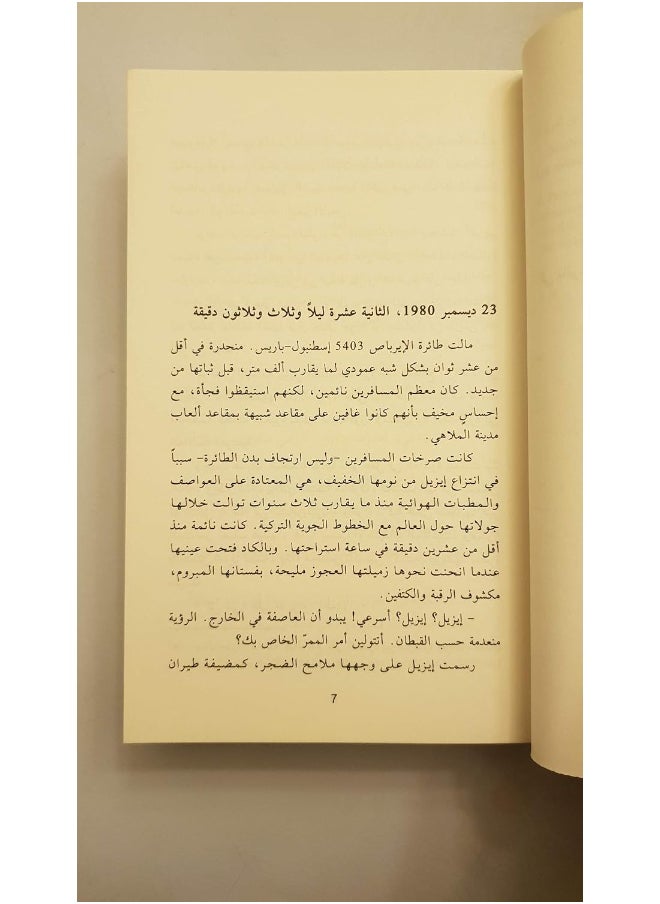 23 ديسمبر 1980، الثانية عشرة ليلاً وثلاث وثلاثون دقيقة
مالت طائرة الإيرباص 5403 إسطنبول-باريس. منحدرة في أقل
من عشر ثوان بشكل شبه عمودي لما يقارب ألف متر، قبل ثباتها من
جديد. كان معظم المسافرين نائمين، لكنهم استيقظوا فجأة، مع
إحساسٍ مخيف بأنهم كانوا غافين على مقاعد شبيهة بمقاعد ألعاب
مدينة الملاهي.
كانت صرخات المسافرين -وليس ارتجاف بدن الطائرة- سبباً
في انتزاع إيزيل من نومها الخفيف، هي المعتادة على العواصف
والمطبات الهوائية منذ ما يقارب ثلاث سنوات توالت خلالها
جولاتها حول العالم مع الخطوط الجوية التركية. كانت نائمة منذ
أقل من عشرين دقيقة في ساعة استراحتها. وبالكاد فتحت عينيها
عندما انحنت نحوها زميلتها العجوز مليحة، بفستانها المبروم،
مكشوف الرقبة والكتفين.
- إيزيل؟ إيزيل؟ أسرعي! يبدو أن العاصفة في الخارج. الرؤية
منعدمة حسب القبطان. أتتولين أمر الممرّ الخاص بك؟
رسمت إيزيل على وجهها ملامح الضجر، كمضيفة طيران
7